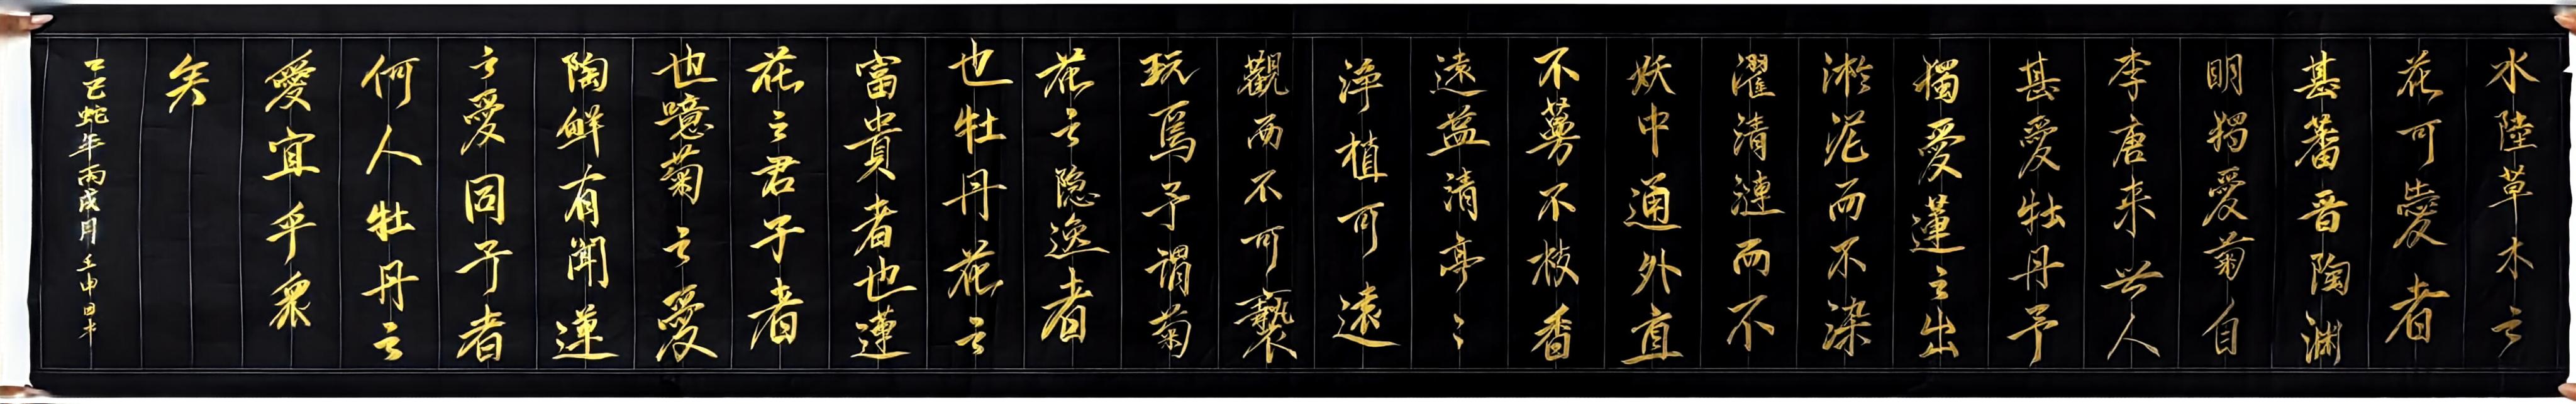 水陸草木之
花可愛者
甚蕃晋陶渊
明獨愛菊自
李唐来世人
甚愛牡丹予
獨愛蓮之出
淤泥而不染
濯清漣而不
妖中通外直
不蔓不枝香
遠益清亭〻
淨植可遠
觀而不可褻
玩焉予謂菊
花之隐逸者
也牡丹花之
富貴者也蓮
花之君子者
也噫菊之愛
陶鮮有聞蓮
之愛同予者
何人牡丹之
愛宜乎衆
矣
乙巳蛇年丙戌月壬申日书